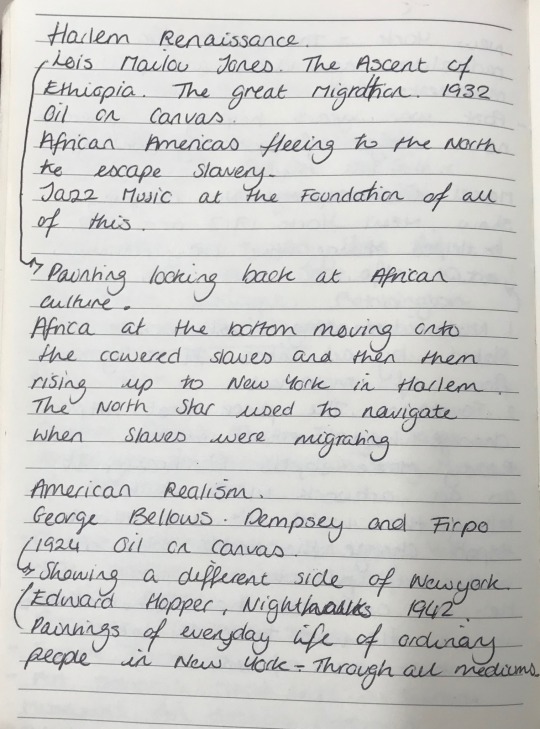 Harlem Renaissance.
Lois Mailou Jones. The Ascent of
Ethiopia. The great Migration. 1932
Oil on canvas.
African Americas fleeing to the North
to escape Slavery.
Jazz Music at the Foundation of all
of this.
Painting looking back at African
culture.
Africa at the bottom moving onto
the cowered slaves and then them
rising up to New York in Harlem.
The North Star used to navigate
when slaves were migrating
American Realism.
George Bellows. Dempsey and Firpo
1924 Oil on Canvas.
Showing a different side of Newyork.
Edward Hopper, Nighthawks 1942.
Paintings of everyday life of ordinary
people in New York - Through all mediums.